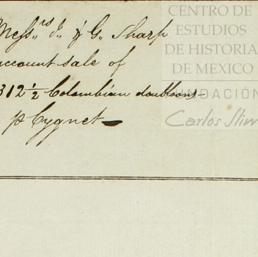 Messrs. J. & G. Sharp
account sale of
312 1/2 Colombian doubloons
p Cygnet
CENTRO DE
ESTUDIOS
DE HISTORIA
DE MEXICO
FUNDACIÓN
Carlos Slim